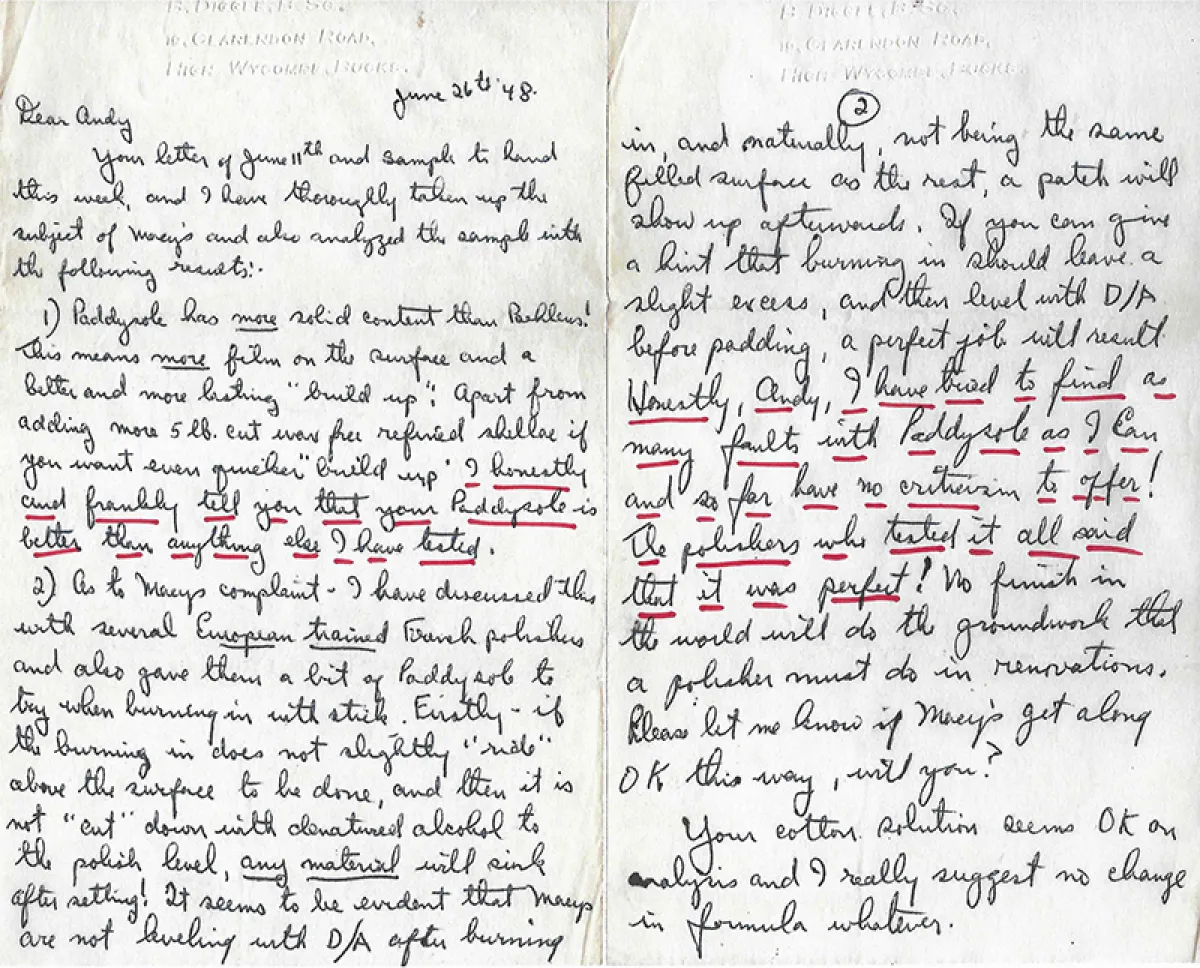 B. DIGGLE, B.Sc.
16, CLARENDON ROAD,
HIGH WYCOMBE, BUCKS.
June 26th '48.
Dear Andy
Your letter of June 11th and sample to hand
this week, and I have thoroughly taken up the
subject of Macy's and also analyzed the sample with
the following results:-
1) Paddysole has more solid content than Behlens!
This means more film on the surface and a
better and more lasting "build up". Apart from
adding more 5 lb. cut wax free refined shellac if
you want even quicker "build up" I honestly
and frankly tell you that your Paddysole is
better than anything else I have tested.
2) As to Macys complaint - I have discussed this
with several European trained French polishers
and also gave them a bit of Paddysole to
try when burning in with stick. Firstly - if
the burning in does not slightly "ride"
above the surface to be done, and then it is
not "cut" down with denatured alcohol to
the polish level, any material will sink
after setting! It seems to be evident that Macys
are not leveling with D/A after burning
B. DIGGLE, B.Sc.
16, CLARENDON ROAD,
HIGH WYCOMBE, BUCKS.
2
in, and naturally, not being the same
filled surface as the rest, a patch will
show up afterwards. If you can give
a hint that burning in should leave a
slight excess, and then level with D/A
before padding, a perfect job will result
Honestly, Andy, I have tried to find as
many faults with Paddysole as I can
and so far have no criticism to offer!
The polishers who tested it all said
that it was perfect! No finish in
the world will do the groundwork that
a polisher must do in renovations.
Please let me know if Macy's get along
OK this way, will you?
Your cotton solution seems OK on
analysis and I really suggest no change
in formula whatever.